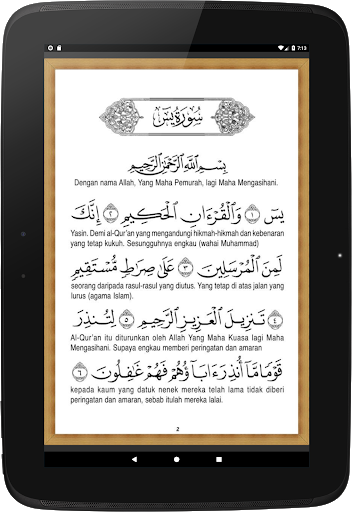 7:13
سُورَةُ يسٓ
بِسْمِ ٱللَّهِ ٱلرَّحْمَٰنِ ٱلرَّحِيمِ
Dengan nama Allah, Yang Maha Pemurah, lagi Maha Mengasihani.
يسٓ ۝١ وَٱلْقُرْءَانِ ٱلْحَكِيمِ ۝٢ إِنَّكَ
Yasin. Demi al-Qur'an yang mengandungi hikmah-hikmah dan kebenaran
yang tetap kukuh. Sesungguhnya engkau (wahai Muhammad)
لَمِنَ ٱلْمُرْسَلِينَ ۝٣ عَلَىٰ صِرَٰطٍ مُّسْتَقِيمٍ
seorang daripada rasul-rasul yang diutus. Yang tetap di atas jalan yang
lurus (agama Islam).
۝٤ تَنزِيلَ ٱلْعَزِيزِ ٱلرَّحِيمِ ۝٥ لِتُنذِرَ
Al-Qur'an itu diturunkan oleh Allah Yang Maha Kuasa lagi Maha
Mengasihani. Supaya engkau memberi peringatan dan amaran
قَوْمًا مَّآ أُنذِرَ ءَابَآؤُهُمْ فَهُمْ غَٰفِلُونَ ۝٦
kepada kaum yang datuk nenek mereka telah lama tidak diberi
peringatan dan amaran, sebab itulah mereka lalai.
2